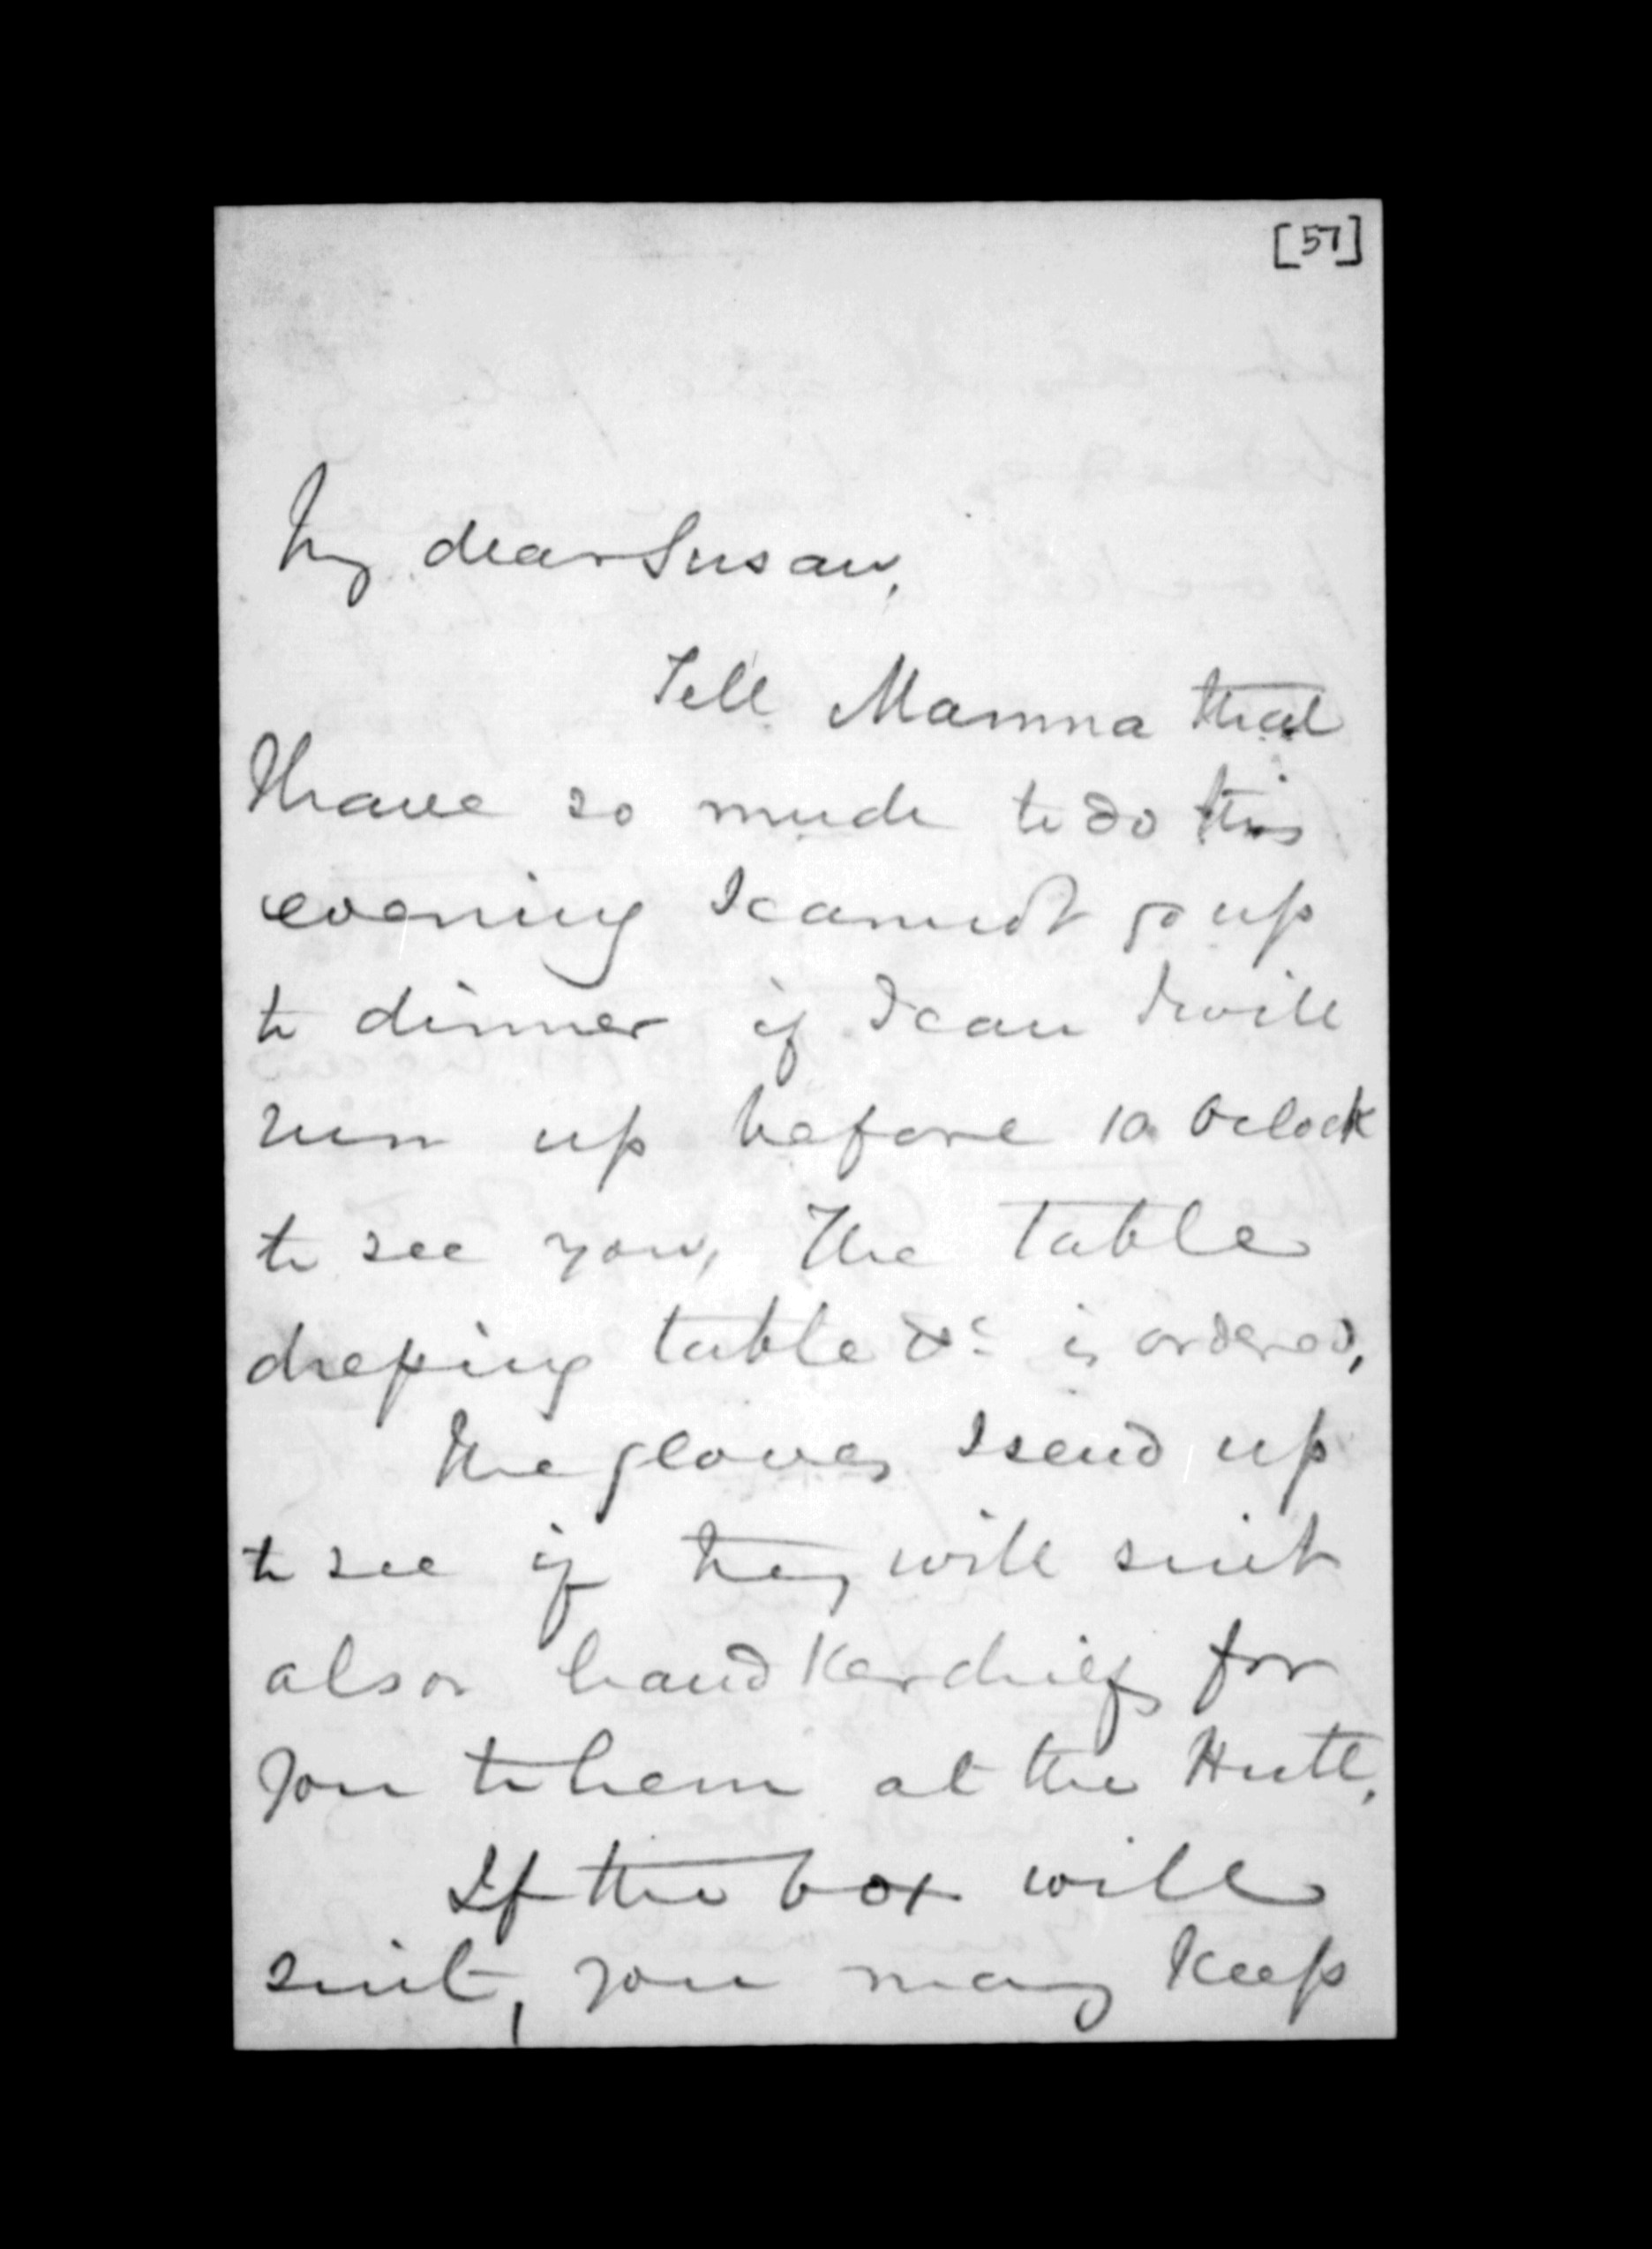 [57]
My dear Susan,
Tell Mamma that
I have so much to do this
evening I cannot go up
to dinner if I can I will
run up before 10 Oclock
to see you, The table
dressing table &c is ordered,
The gloves I send up
to see if they will suit
also handkerchiefs for
you to hem at the Hutt.
If the box will
suit, you may keep